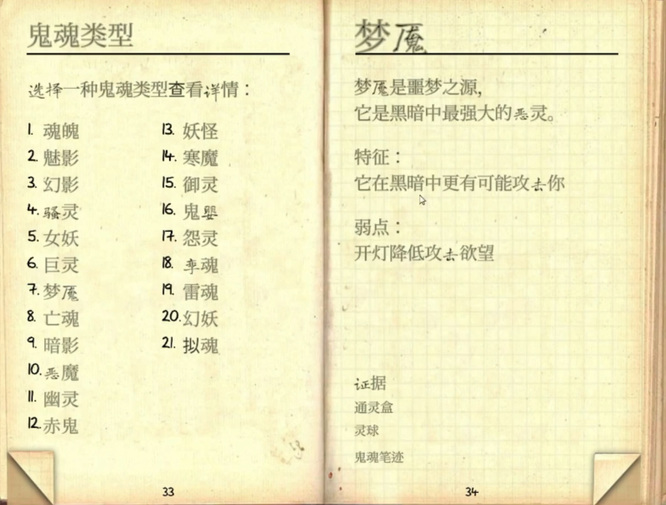 鬼魂类型
选择一种鬼魂类型查看详情：
1. 魂魄
2. 魅影
3. 幻影
4. 骚灵
5. 女妖
6. 巨灵
7. 梦魇
8. 亡魂
9. 暗影
10. 恶魔
11. 幽灵
12. 赤鬼
13. 妖怪
14. 寒魔
15. 御灵
16. 鬼婴
17. 怨灵
18. 孪魂
19. 雷魂
20. 幻妖
21. 拟魂
33
梦魇
梦魇是噩梦之源，
它是黑暗中最强大的恶灵。
特征：
它在黑暗中更有可能攻击你
弱点：
开灯降低攻击欲望
证据
通灵盒
灵球
鬼魂笔迹
34